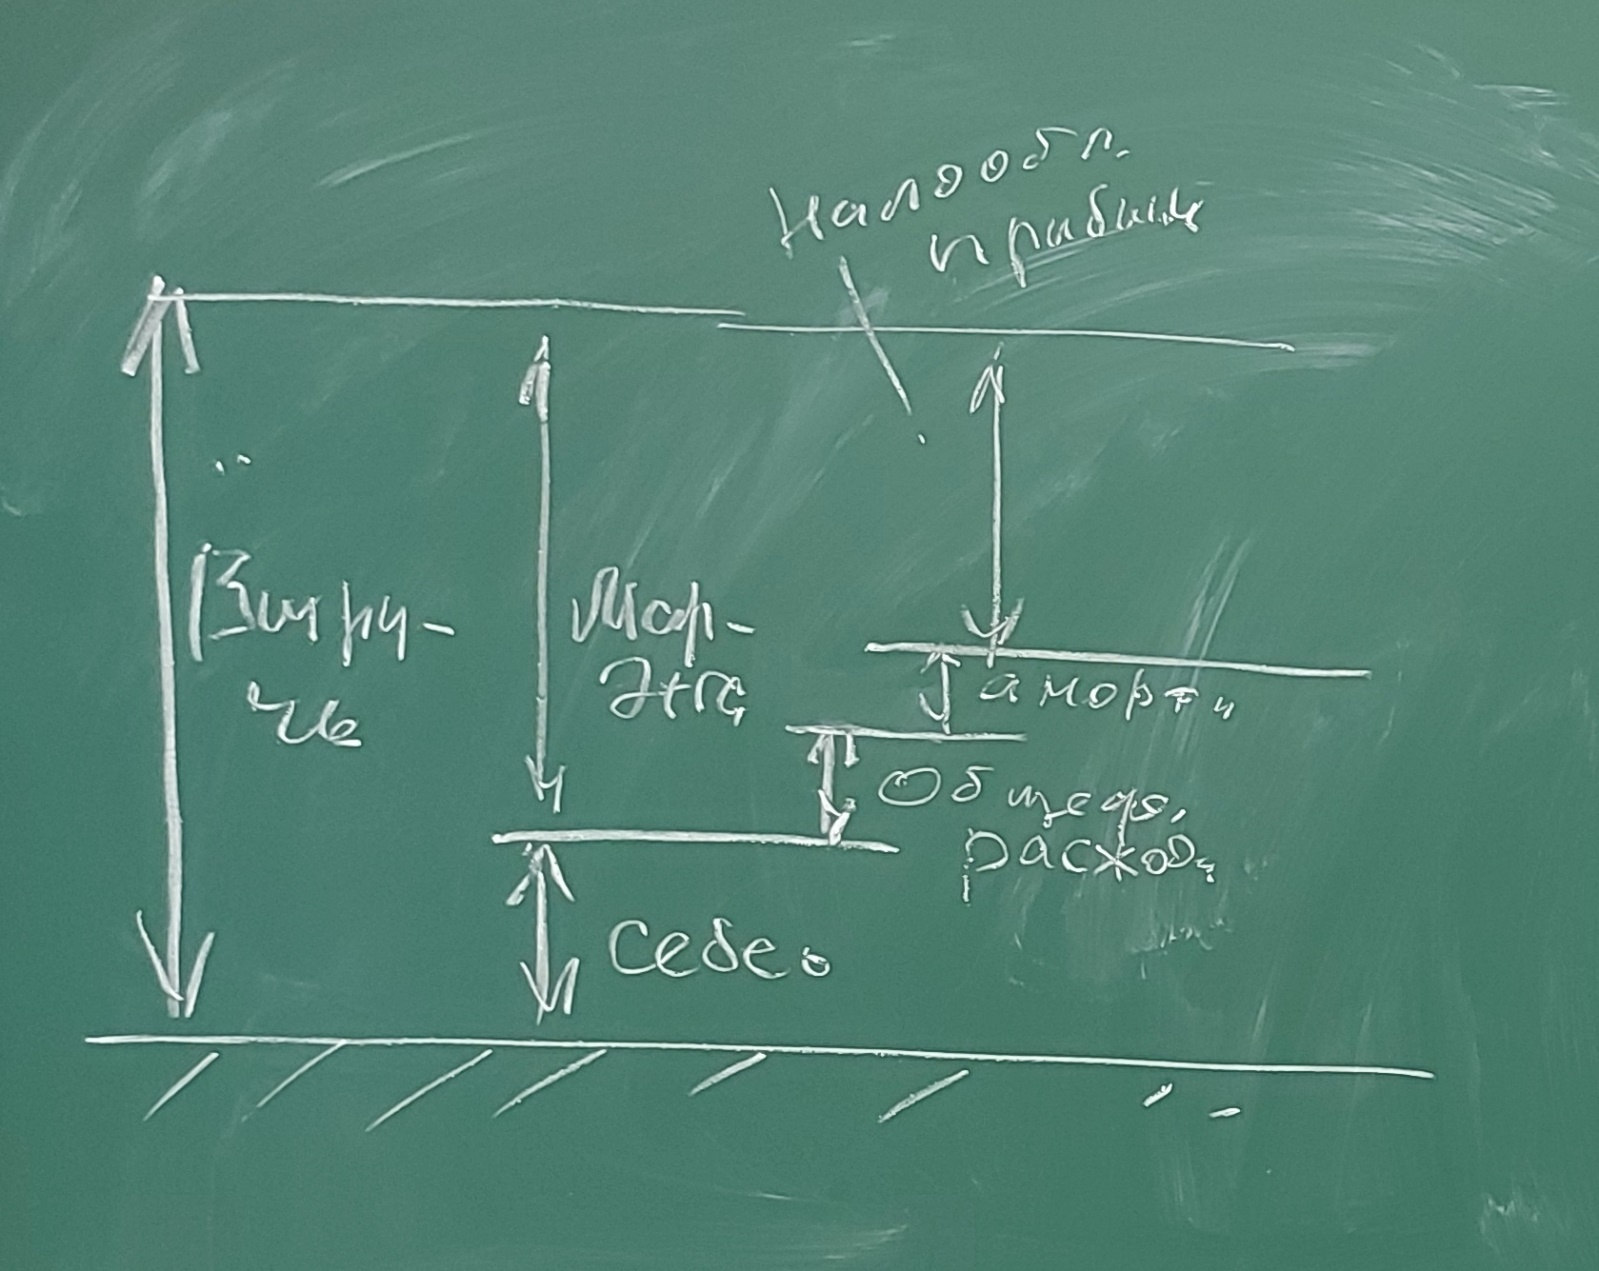 Налообл.
прибыль
Выру-
чка
Мар-
жа
аморти
Общеф.
расход
Себес